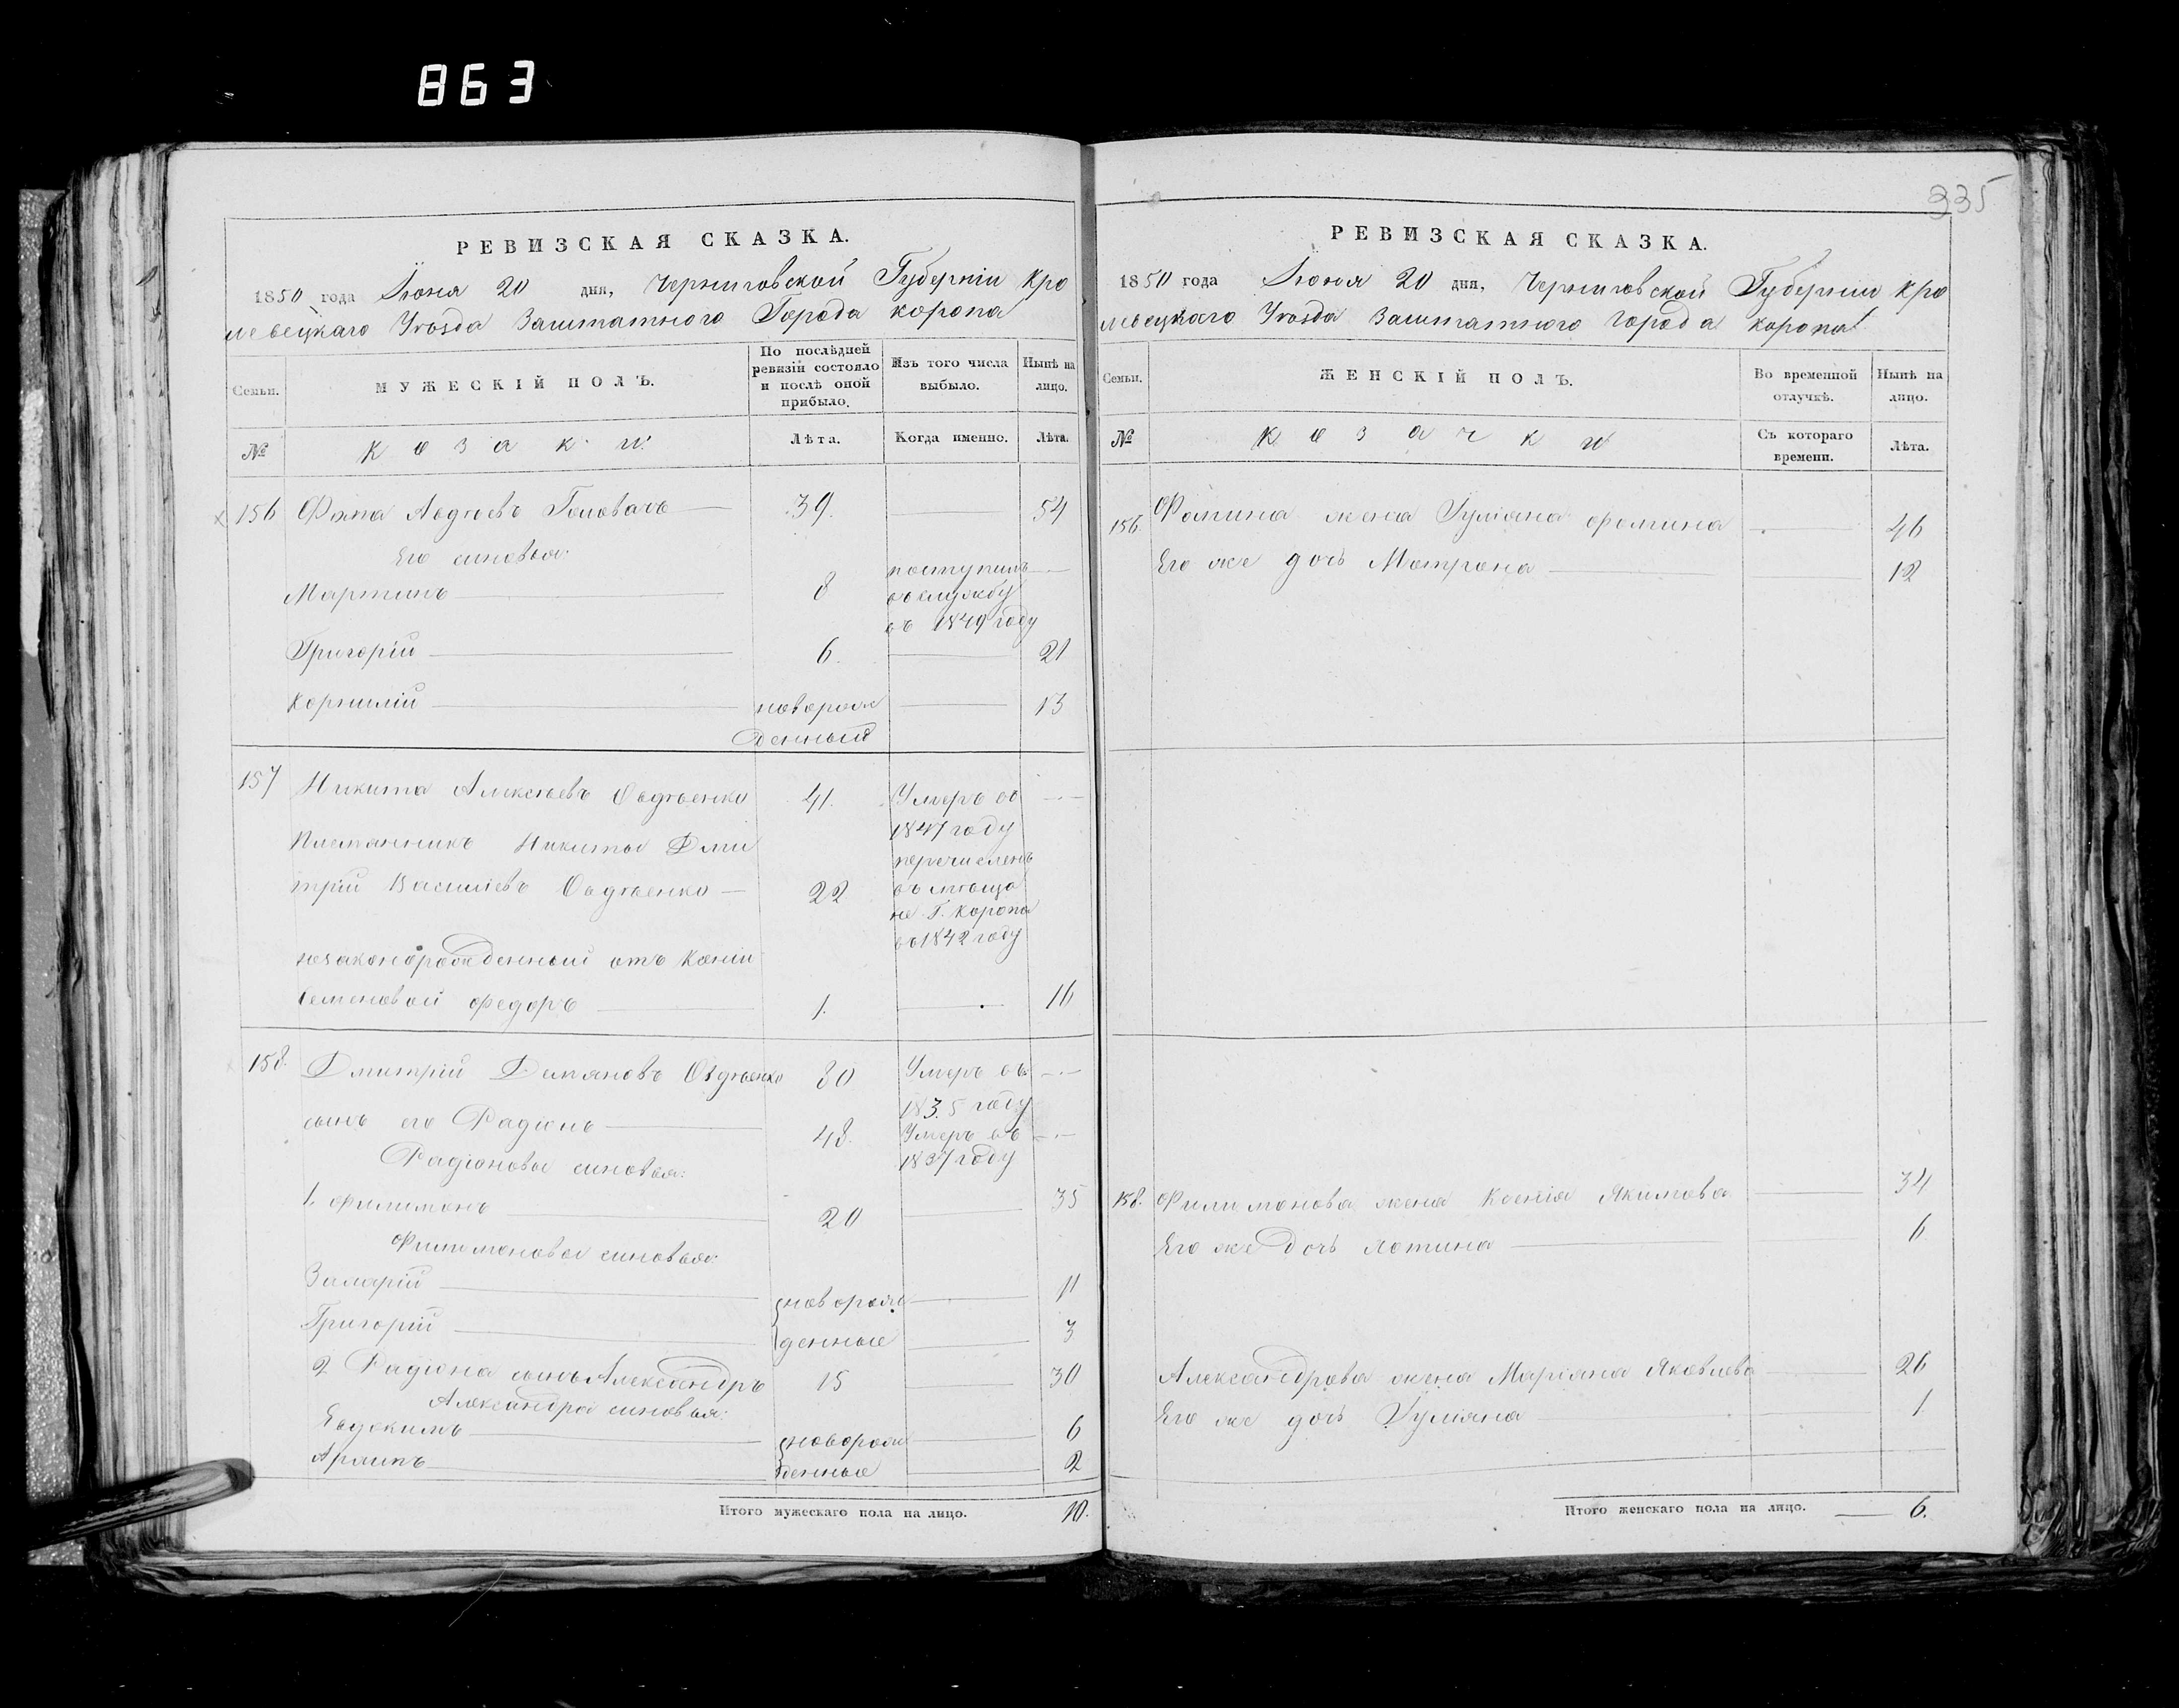 863
335
РЕВИЗСКАЯ СКАЗКА.
1850 года Іюня 20 дня, Черниговской Губерніи Кро
левецкаго Уѣзда Заштатнаго Города Коропа
Семьи.
МУЖЕСКІЙ ПОЛЪ.
По послѣдней ревизіи состояло и послѣ оной прибыло.
Изъ того числа выбыло.
Нынѣ на лицо.
№
Козаки
Лѣта.
Когда именно.
Лѣта.
156 Фома Авдѣевъ Головачь 39. 54
Его синовья:
Мартинъ 8 поступилъ
въ службу
въ 1849 году
Григорій 6. 21
Корнилій новорож 13
денный
157 Никита Алексѣевъ Овдѣенко 41. Умеръ въ
1847 году
Племянникъ Никиты Дми
перечисленъ
трій Василіевъ Овдѣенко 22 въ мѣща
не Г. Коропа
въ 1842 году
незаконорожденный отъ Ксеніи
Семеновой Федоръ 1. 16
158. Дмитрій Демяновъ Овдѣенко 80 Умеръ въ
1835 году
сынъ его Радіонъ 48. Умеръ въ
1837 году
Радіоновы синовья:
1. Филимонъ 20 35
Филимоновы синовья:
Захарій новорож 11
Григорій денные 3
2 Радіона сынъ Александръ 15 30
Александра синовья:
Евдокимъ новорож 6
Архипъ денные 2
Итого мужескаго пола на лицо. 10.
РЕВИЗСКАЯ СКАЗКА.
1850 года Іюня 20 дня, Черниговской Губерніи Кро
левецкаго Уѣзда Заштатнаго Города Коропа
Семьи.
ЖЕНСКІЙ ПОЛЪ.
Во временной отлучкѣ.
Нынѣ на лицо.
№
Козачки
Съ котораго времени.
Лѣта.
156. Фомина жена Гуліяна Фомина 46
Его же дочь Мотрона 12
158. Филимонова жена Ксенія Якимова 34
Его же дочь 6
Александрова жена Маріяна Яковлева 26
Его же дочь Гуліяна 1
Итого женскаго пола на лицо. 6.